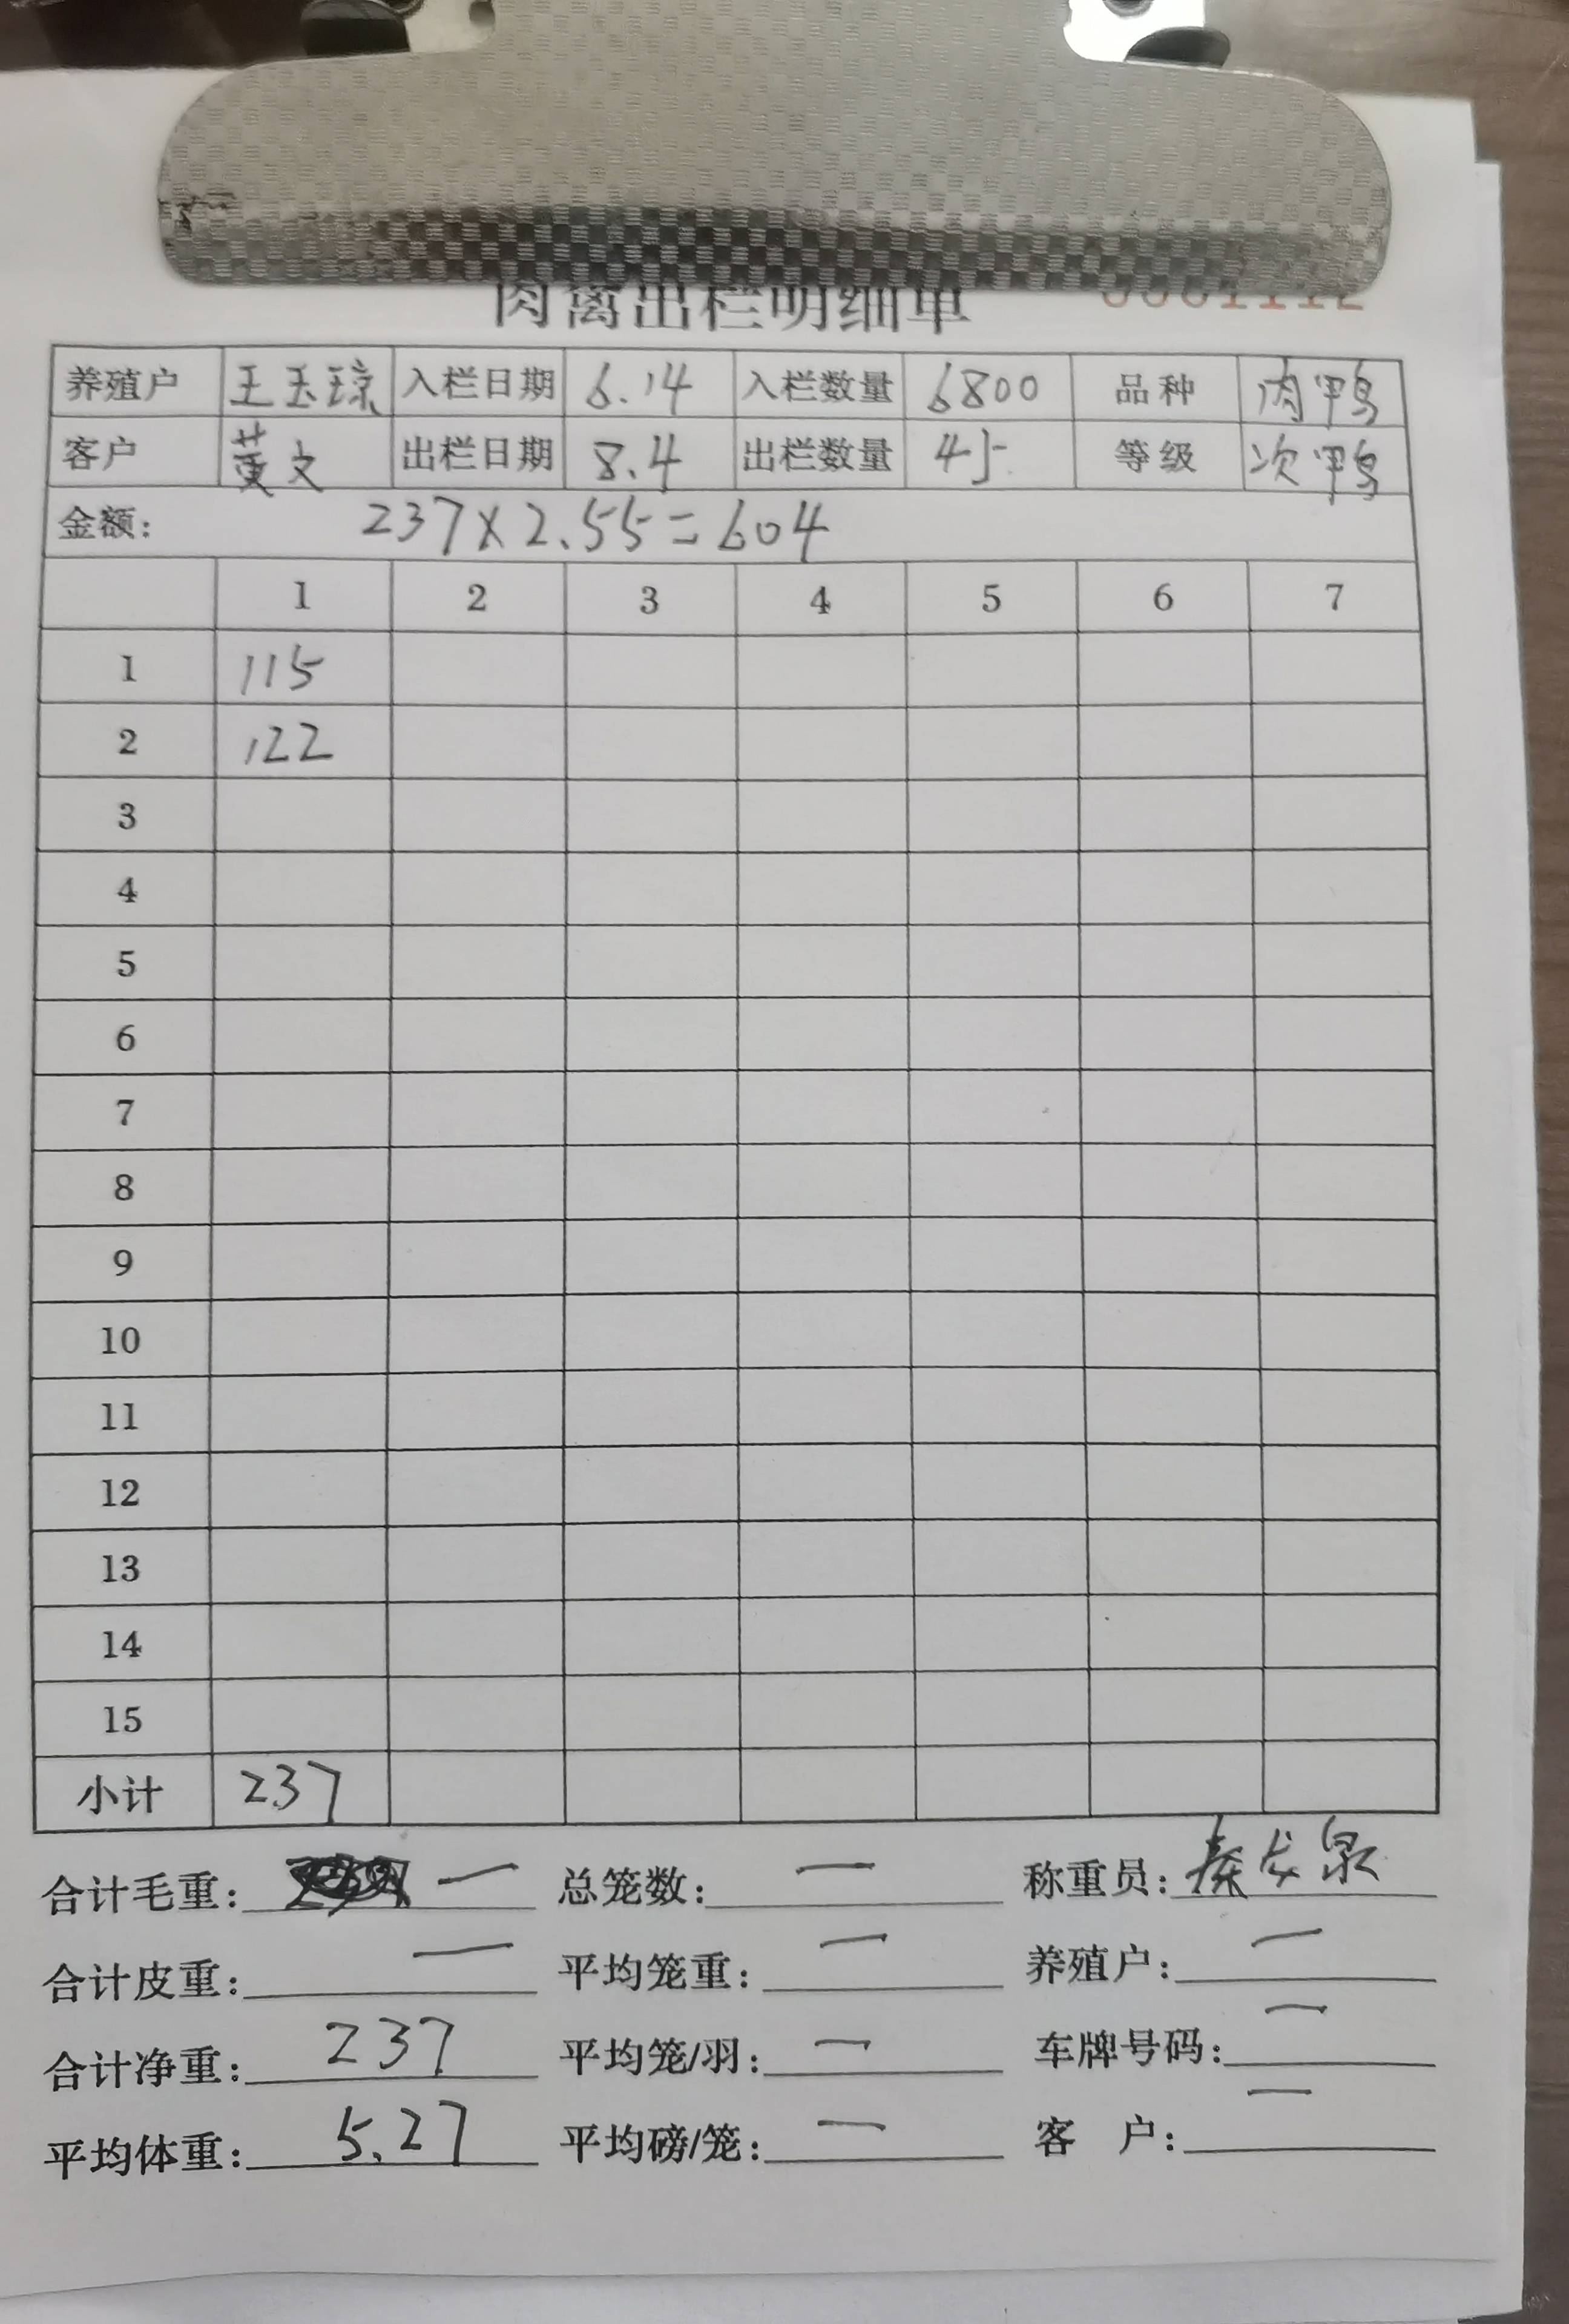 肉禽出栏明细单 0001112
养殖户 王玉琼 入栏日期 6.14 入栏数量 6800 品种 肉鸭
客户 董文 出栏日期 8.4 出栏数量 45 等级 次鸭
金额: 237×2.55=604
1 2 3 4 5 6 7
1 115
2 122
3
4
5
6
7
8
9
10
11
12
13
14
15
小计 237
合计毛重: — 总笼数: — 称重员: 秦龙泉
合计皮重: — 平均笼重: — 养殖户: —
合计净重: 237 平均笼/羽: — 车牌号码: —
平均体重: 5.27 平均磅/笼: — 客 户: —